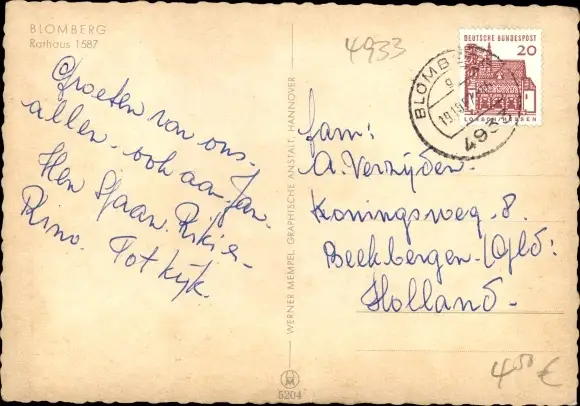 BLOMBERG
Rathaus 1587
4933
Groeten van ons-
allen. ook aan Jan.
Hen Sjaan. Rikie-
Rino. Tot kijk.
WERNER MEMPEL, GRAPHISCHE ANSTALT, HANNOVER
5204
DEUTSCHE BUNDESPOST
20
LORSCH/HESSEN
BLOMB
493
fam:
A. Verzijden.
Koningsweg. 8.
Beekbergen. (Gld:
Holland.
450 €